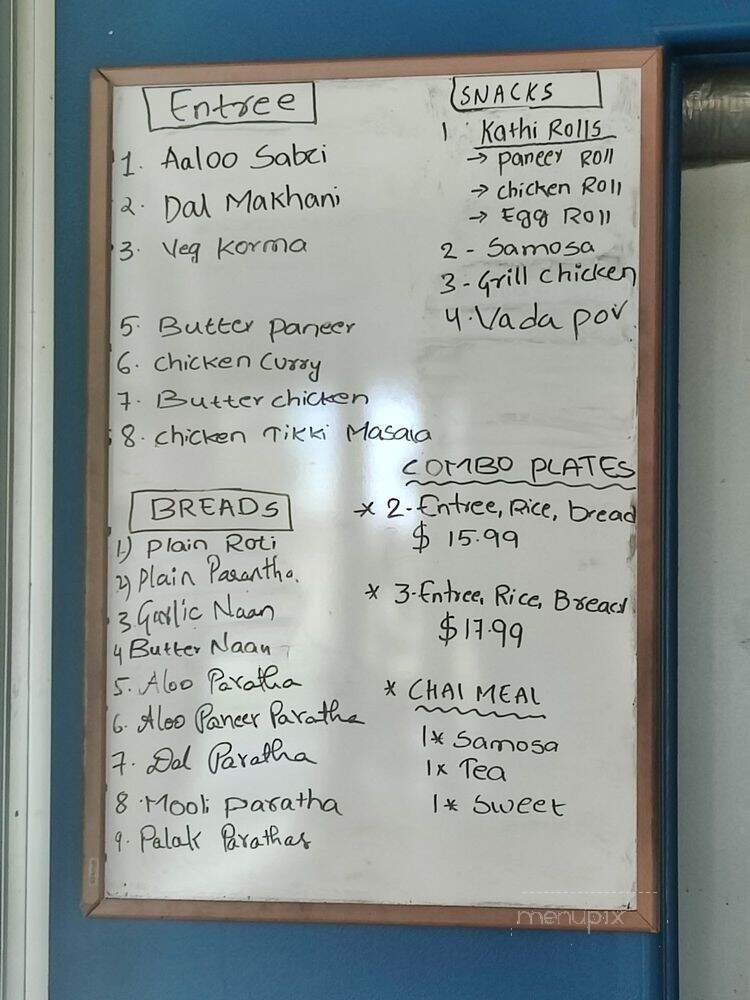 Entree
1. Aaloo Sabzi
2. Dal Makhani
3. Veg Korma
5. Butter Paneer
6. Chicken Curry
7. Butter chicken
8. Chicken Tikki Masala
BREADS
1) Plain Roti
2) Plain Parantha.
3 Garlic Naan
4 Butter Naan
5. Aloo Paratha
6. Aloo Paneer Paratha
7. Dal Paratha
8. Mooli paratha
9. Palak Parathas
SNACKS
1 Kathi Rolls
→ paneer Roll
→ chicken Roll
→ Egg Roll
2 - Samosa
3 - Grill chicken
4. Vada pov
COMBO PLATES
* 2-Entree, Rice, bread
$ 15.99
* 3-Entree, Rice, Bread
$17.99
* CHAI MEAL
1* Samosa
1x Tea
1* Sweet
menupix